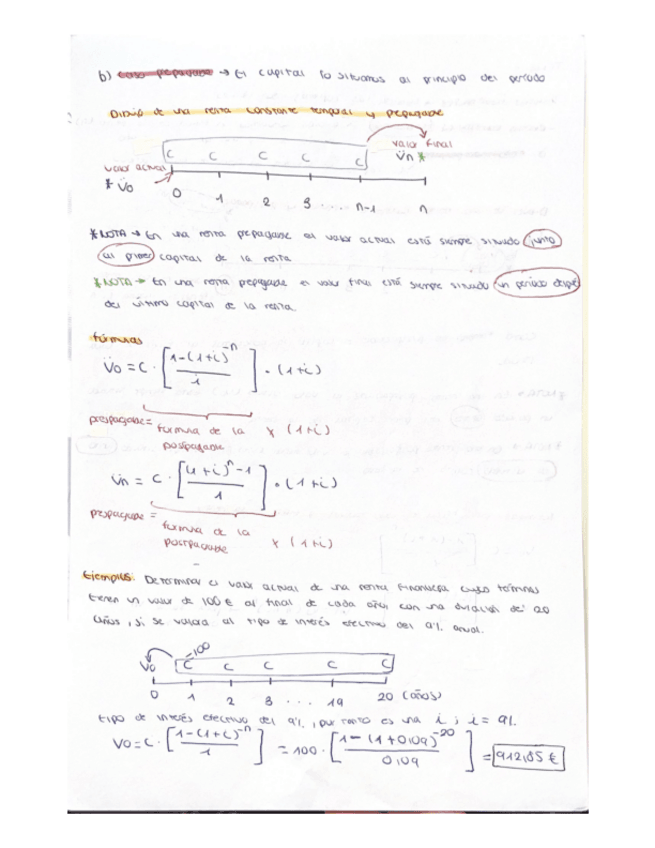 b) caso prepagable → El capital lo situamos al principio del período
Dibujo de una renta constante temporal y prepagable
valor final
C C C C C V̈n *
valor actual
* V̈o 0 1 2 3 ... n-1 n
* NOTA → En una renta prepagable el valor actual está siempre situado junto
al primer capital de la renta
* NOTA → En una renta prepagable el valor final está siempre situado un período despé
del último capital de la renta.
fórmulas
V̈o = C · [ 1-(1+i)^-n / i ] · (1+i)
prepagable = fórmula de la x (1+i)
postpagable
V̈n = C · [ (1+i)^n -1 / 1 ] · (1+i)
prepagable =
fórmula de la
postpagable x (1+i)
Ejemplos: Determinar el valor actual de una renta financiera cuyos términos
tienen un valor de 100 € al final de cada año, con una duración de 20
años, si se valora al tipo de interés efectivo del 9% anual.
-100
Vo C C C C C
0 1 2 3 ... 19 20 (años)
tipo de interés efectivo del 9%, por tanto es una i ; i = 9%
Vo = C · [ 1-(1+i)^-n / 1 ] = 100 · [ 1-(1+0,09)^-20 / 0,09 ] = 912,85 €